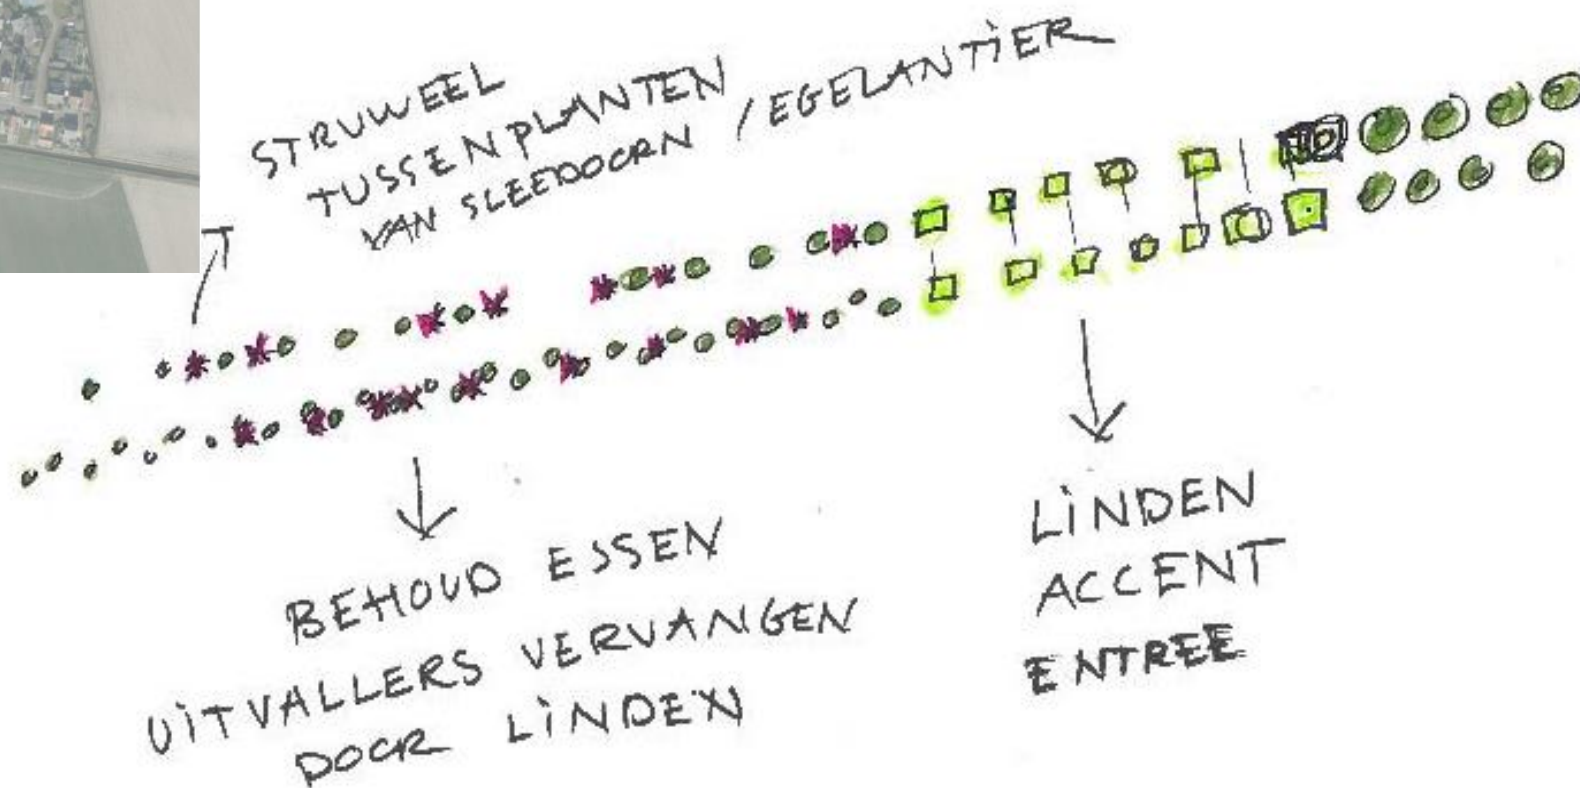 STRUWEEL
TUSSENPLANTEN
VAN SLEEDOORN / EGELANTIER
BEHOUD ESSEN
UITVALLERS VERVANGEN
DOOR LINDEN
LINDEN
ACCENT
ENTREE